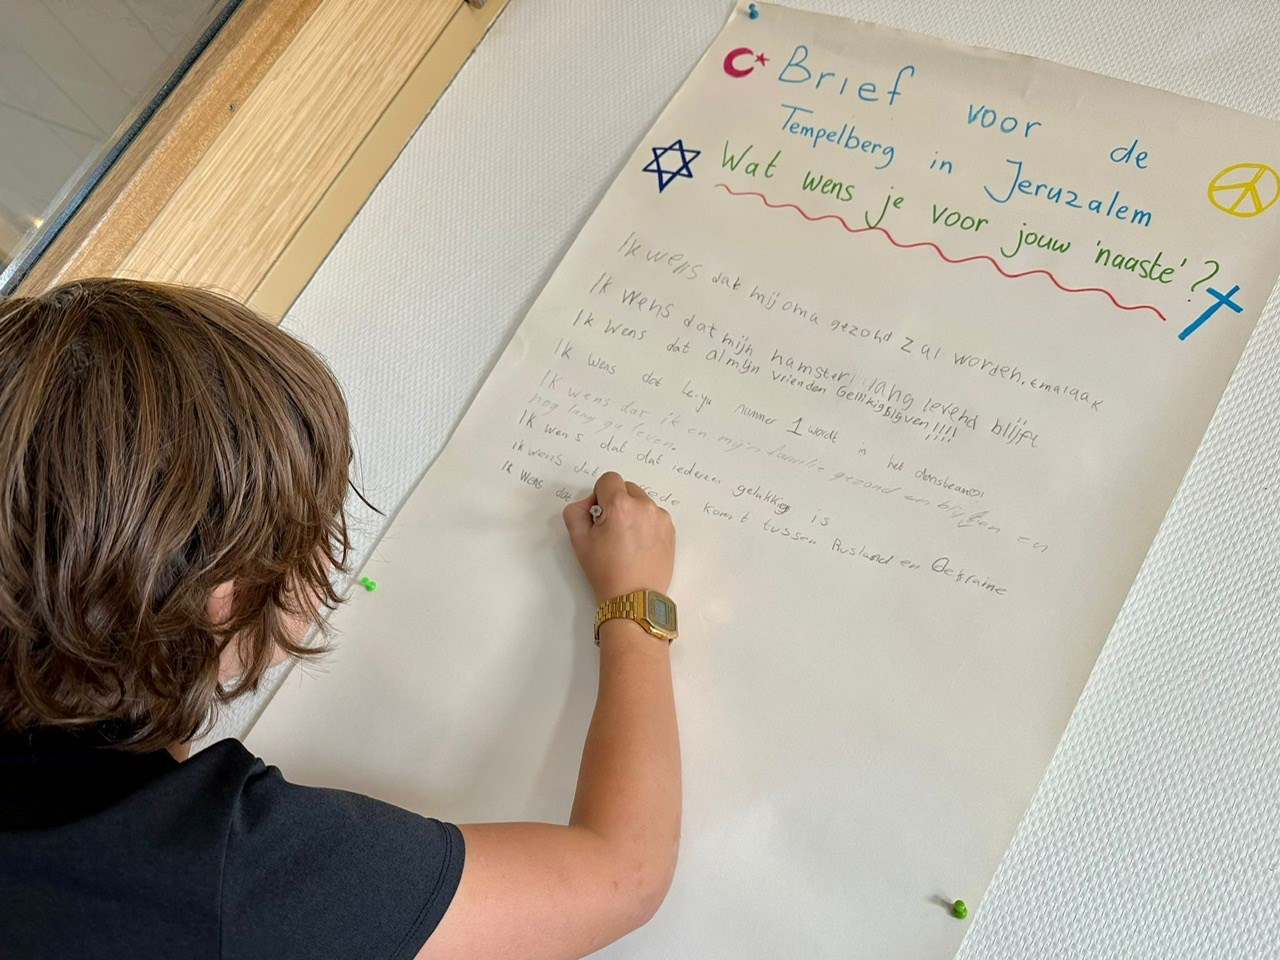 Brief voor de
Tempelberg in Jeruzalem
Wat wens je voor jouw 'naaste'?
Ik wens dat mij oma gezond zal worden.
Ik wens dat mijn hamster lang levend blijft
Ik wens dat al mijn vrienden blijven!!!!
Ik wens dat nummer 1 wordt in het
Ik wens dat ik en mijn familie gezond en blijven en
nog lang leven.
Ik wens dat dat iedereen gelukkig is
Ik wens dat komt tussen Rusland en Oekraine
Ik wens dat